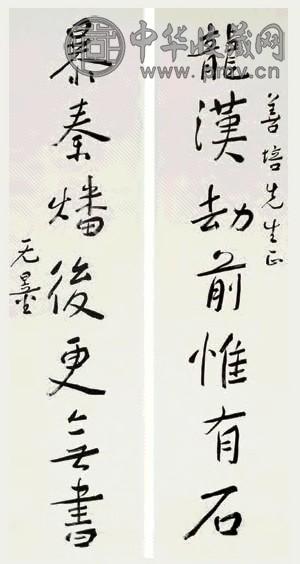 中华收藏网
善培先生正
龍漢劫前惟有石
暴秦燔後更無書
无量